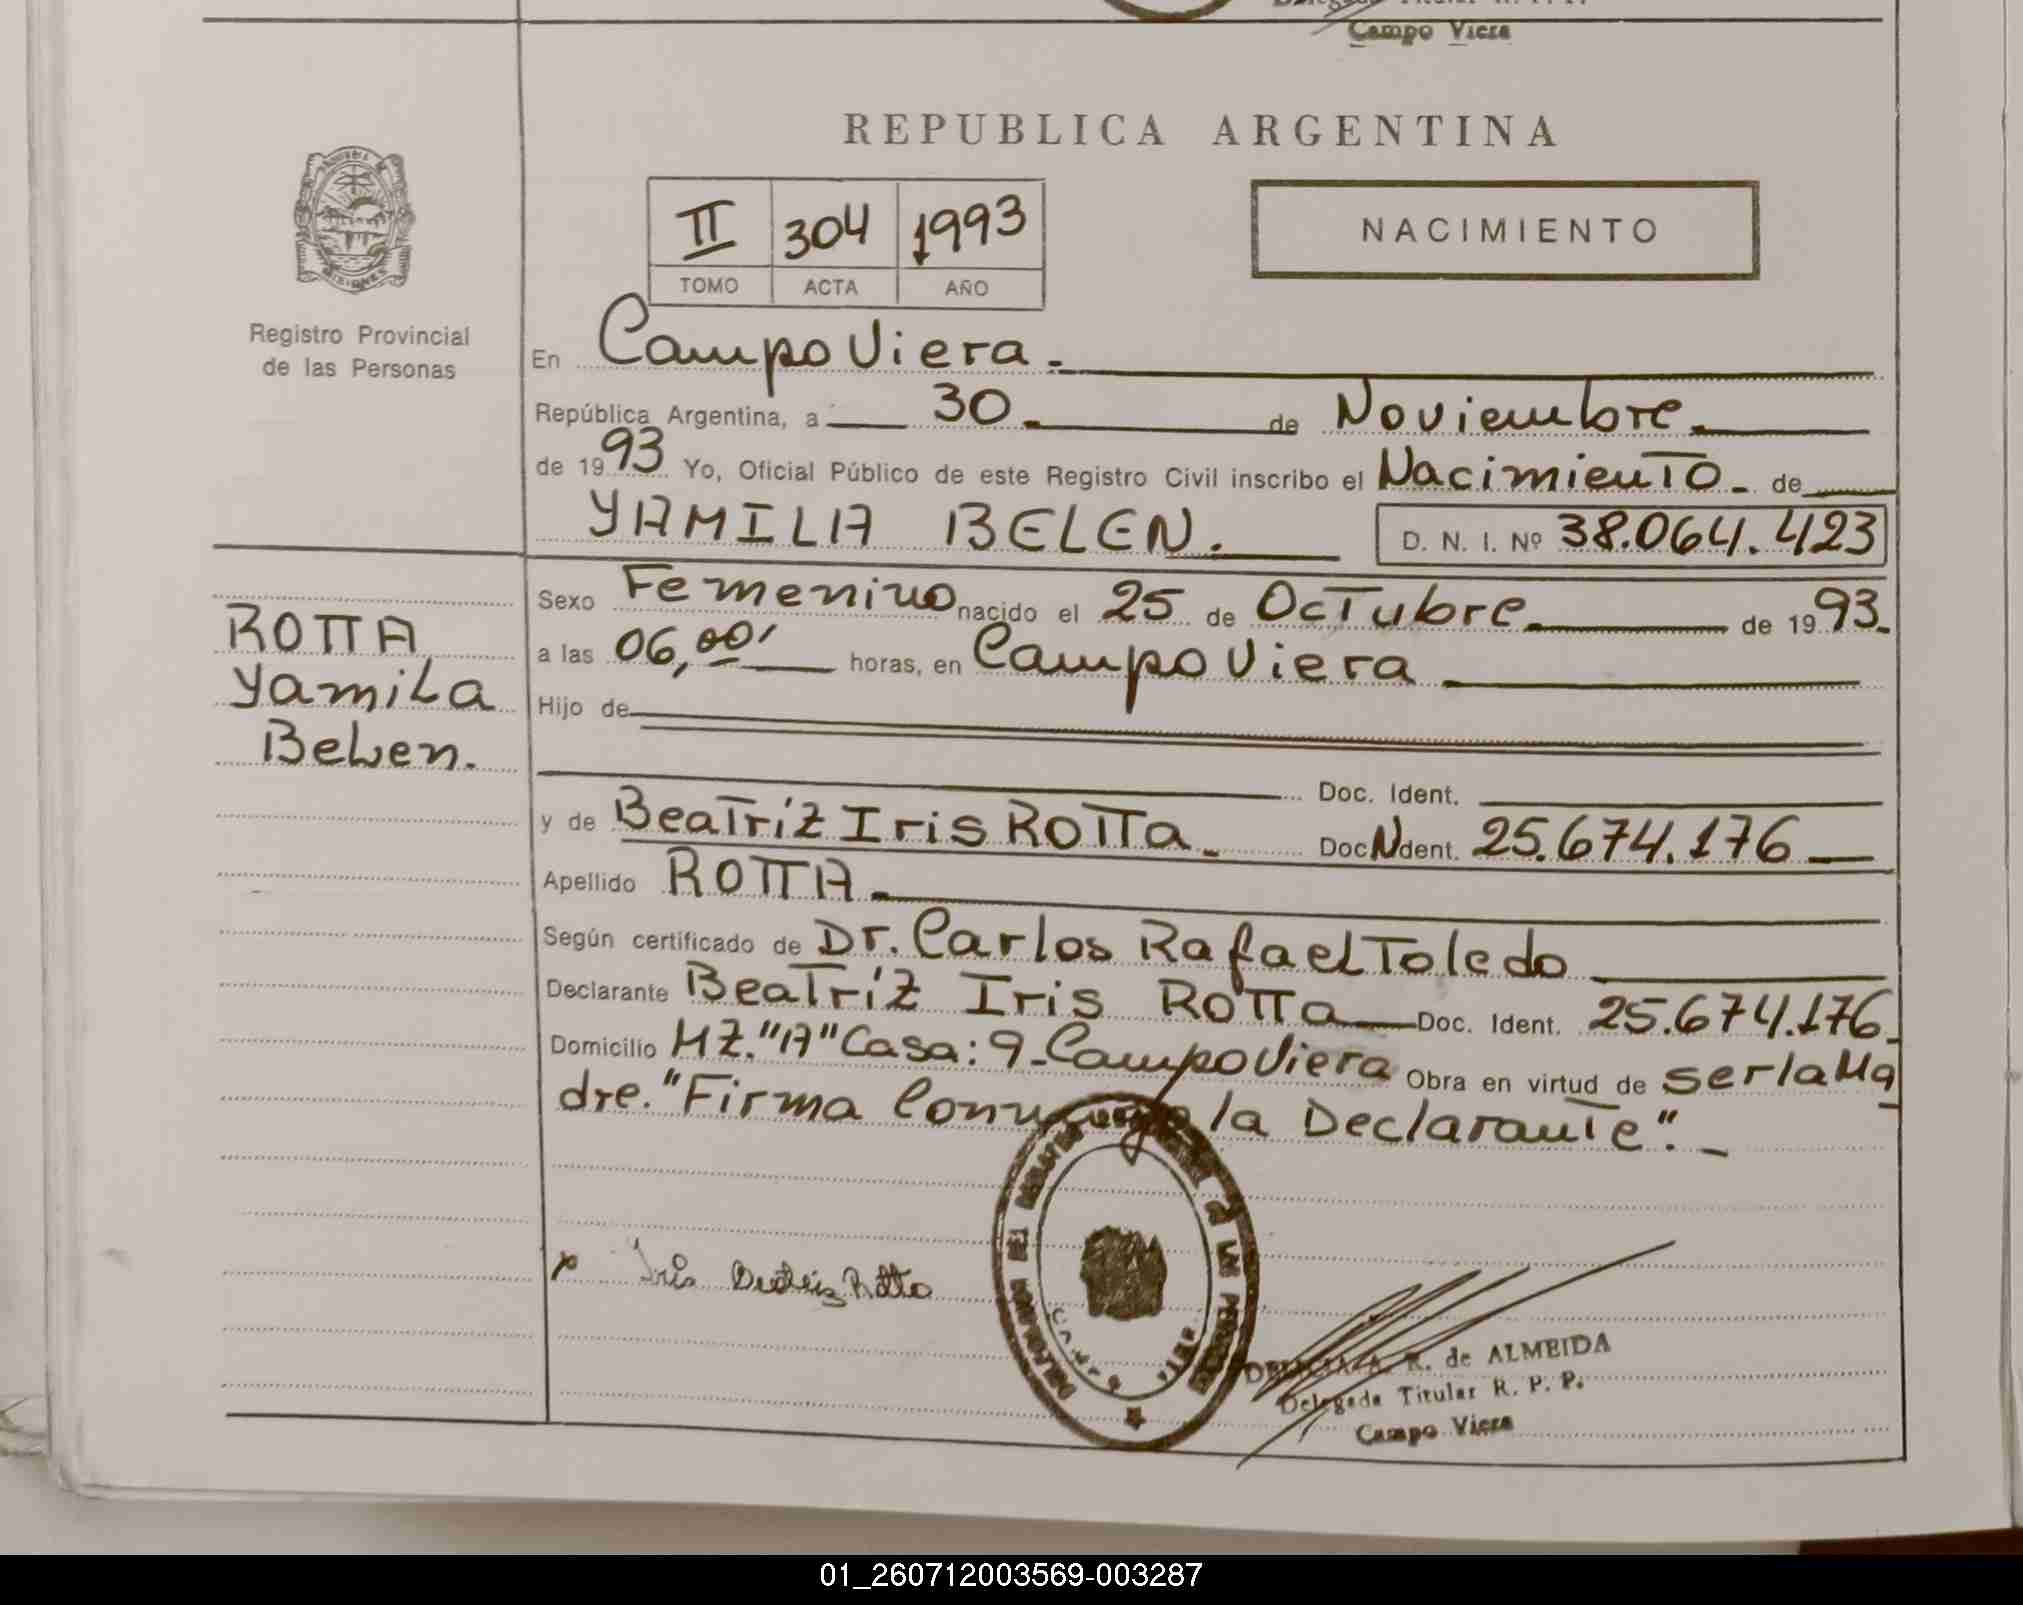 Campo Viera
REPUBLICA ARGENTINA
II 304 1993
TOMO ACTA AÑO
NACIMIENTO
Registro Provincial
de las Personas
En Campo Viera.
República Argentina, a 30 de Noviembre
de 1993 Yo, Oficial Público de este Registro Civil inscribo el Nacimiento de
YAMILA BELEN. D. N. I. Nº 38.064.423
ROTTA
Yamila
Belen.
Sexo Femenino nacido el 25 de Octubre de 1993.
a las 06,00' horas, en Campo Viera
Hijo de
Doc. Ident.
y de Beatríz Iris ROTTa Doc N dent. 25.674.176
Apellido ROTTA
Según certificado de Dr. Carlos Rafael Toledo
Declarante Beatríz Iris ROTTa Doc. Ident. 25.674.176
Domicilio MZ. "A" Casa: 9 - Campo Viera Obra en virtud de ser la Ma
dre. "Firma la Declarante".
x Iris Beatriz Rotta
R. de ALMEIDA
Delegada Titular R. P. P.
Campo Viera
01_260712003569-003287